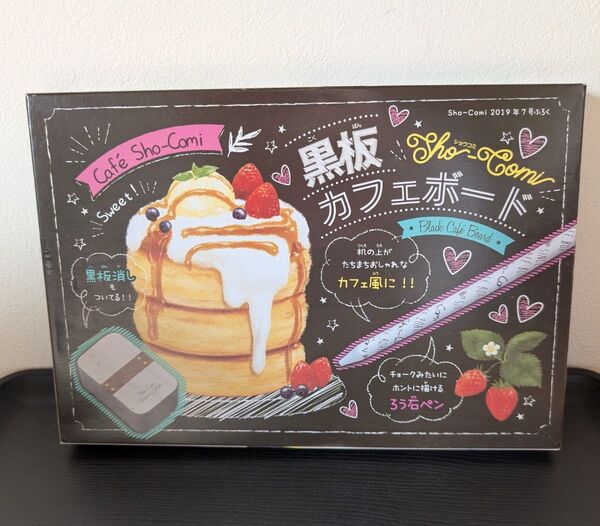 Sho-Comi 2019年7号ふろく
Café Sho-Comi
Sweet!
こく ばん
黒板
ショウコミ
Sho-Comi
カフェボード
Black Café Board
つくえ うえ
机の上が
たちまちおしゃれな
カフェ風に!!
黒板消し
も
ついてる!!
チョークみたいに
ホントに描ける
ろう石ペン